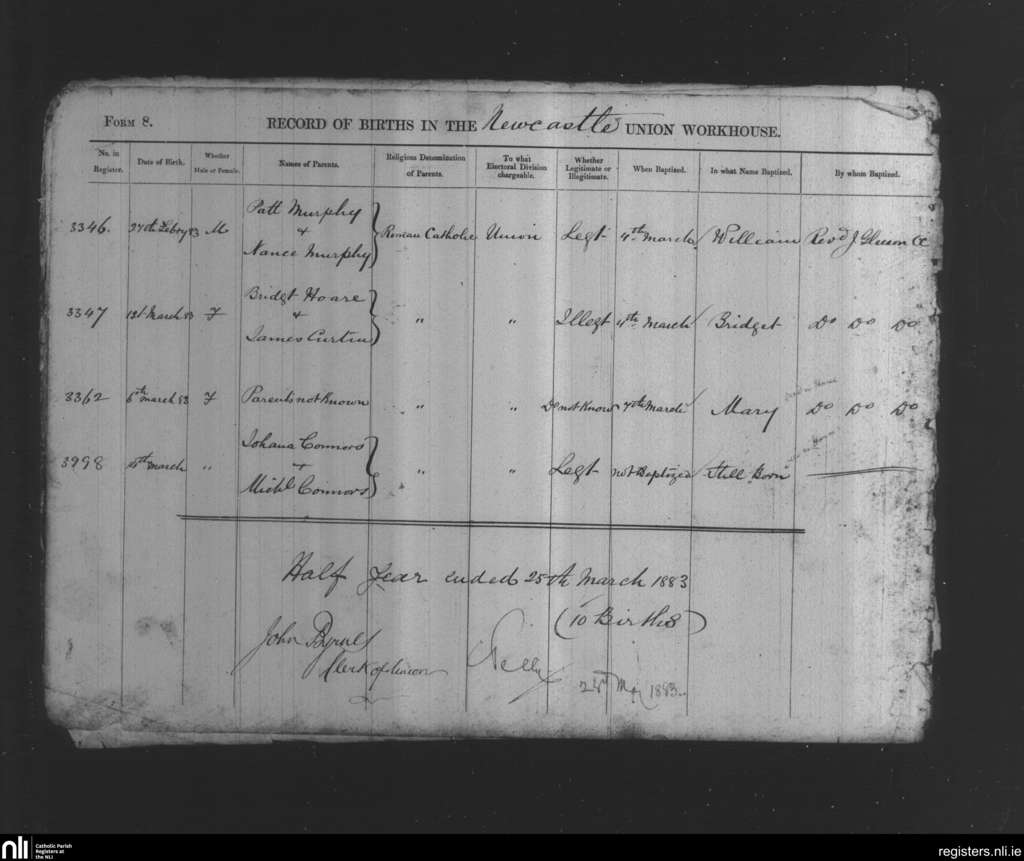 Form 8.
RECORD OF BIRTHS IN THE Newcastle UNION WORKHOUSE.
No. in Register. Date of Birth. Whether Male or Female. Names of Parents. Religious Denomination of Parents. To what Electoral Division chargeable. Whether Legitimate or Illegitimate. When Baptized. In what Name Baptized. By whom Baptized.
3346. 27th Febry 83 M Patt Murphy & Nance Murphy } Roman Catholic Union Legt 4th March William Revd J Gleeson CC
3347 1st March 83 F Bridgt Hoare & James Curtin } " " Illegt 4th March Bridget Do Do Do
3362 6th March 83 F Parents not Known " " Do not Know 7th March Mary Do Do Do
3998 " Johana Connors & Michl Connors } " " Legt not Baptized Still Born
Half Year ended 25th March 1883
(10 Births)
John Byrnes
Clerk of Union
1883
nli Catholic Parish Registers at the NLI
registers.nli.ie